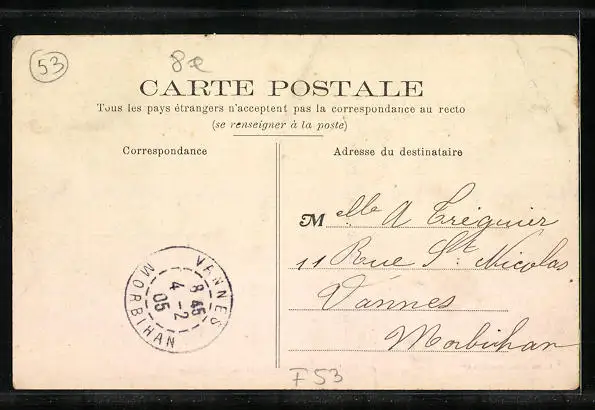 53
8e
CARTE POSTALE
Tous les pays étrangers n'acceptent pas la correspondance au recto
(se renseigner à la poste)
Correspondance
Adresse du destinataire
Melle A Tréguier
11 Rue St. Nicolas
Vannes
Morbihan
VANNES
8 45
4 - 2
05
MORBIHAN
F53